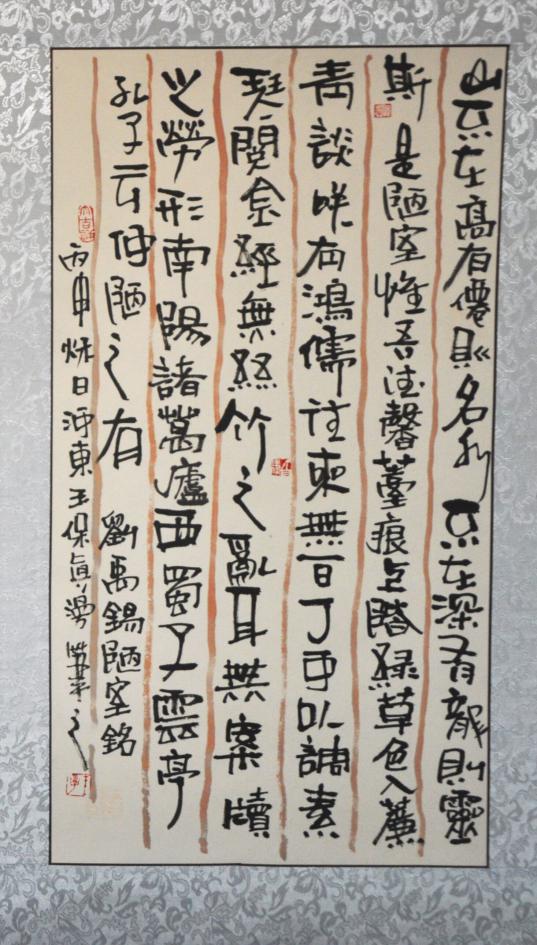 山不在高有僊則名水不在深有龍則靈
斯是陋室惟吾德馨薹痕上階綠草色入簾
青談咲有鴻儒往來無白丁可以調素
琴閱金經無絲竹之亂耳無案牘
之勞形南陽諸葛廬西蜀子雲亭
孔子云何陋之有 劉禹錫陋室銘
丙申秌日 東王保貞之